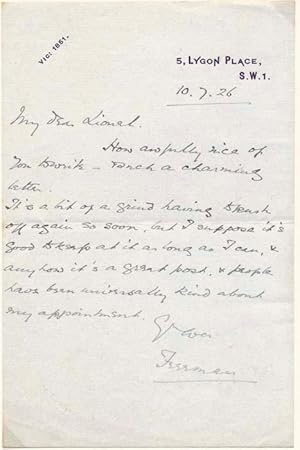 VIC: 1851.
5, LYGON PLACE,
S.W.1.
10.7.26
My dear Lionel.
How awfully nice of
you to write – & such a charming
letter.
It's a bit of a grind having to push
off again so soon, but I suppose it's
good to keep at it as long as I can, &
anyhow it's a great post, & people
have been universally kind about
my appointment.
Yr ever
Freeman